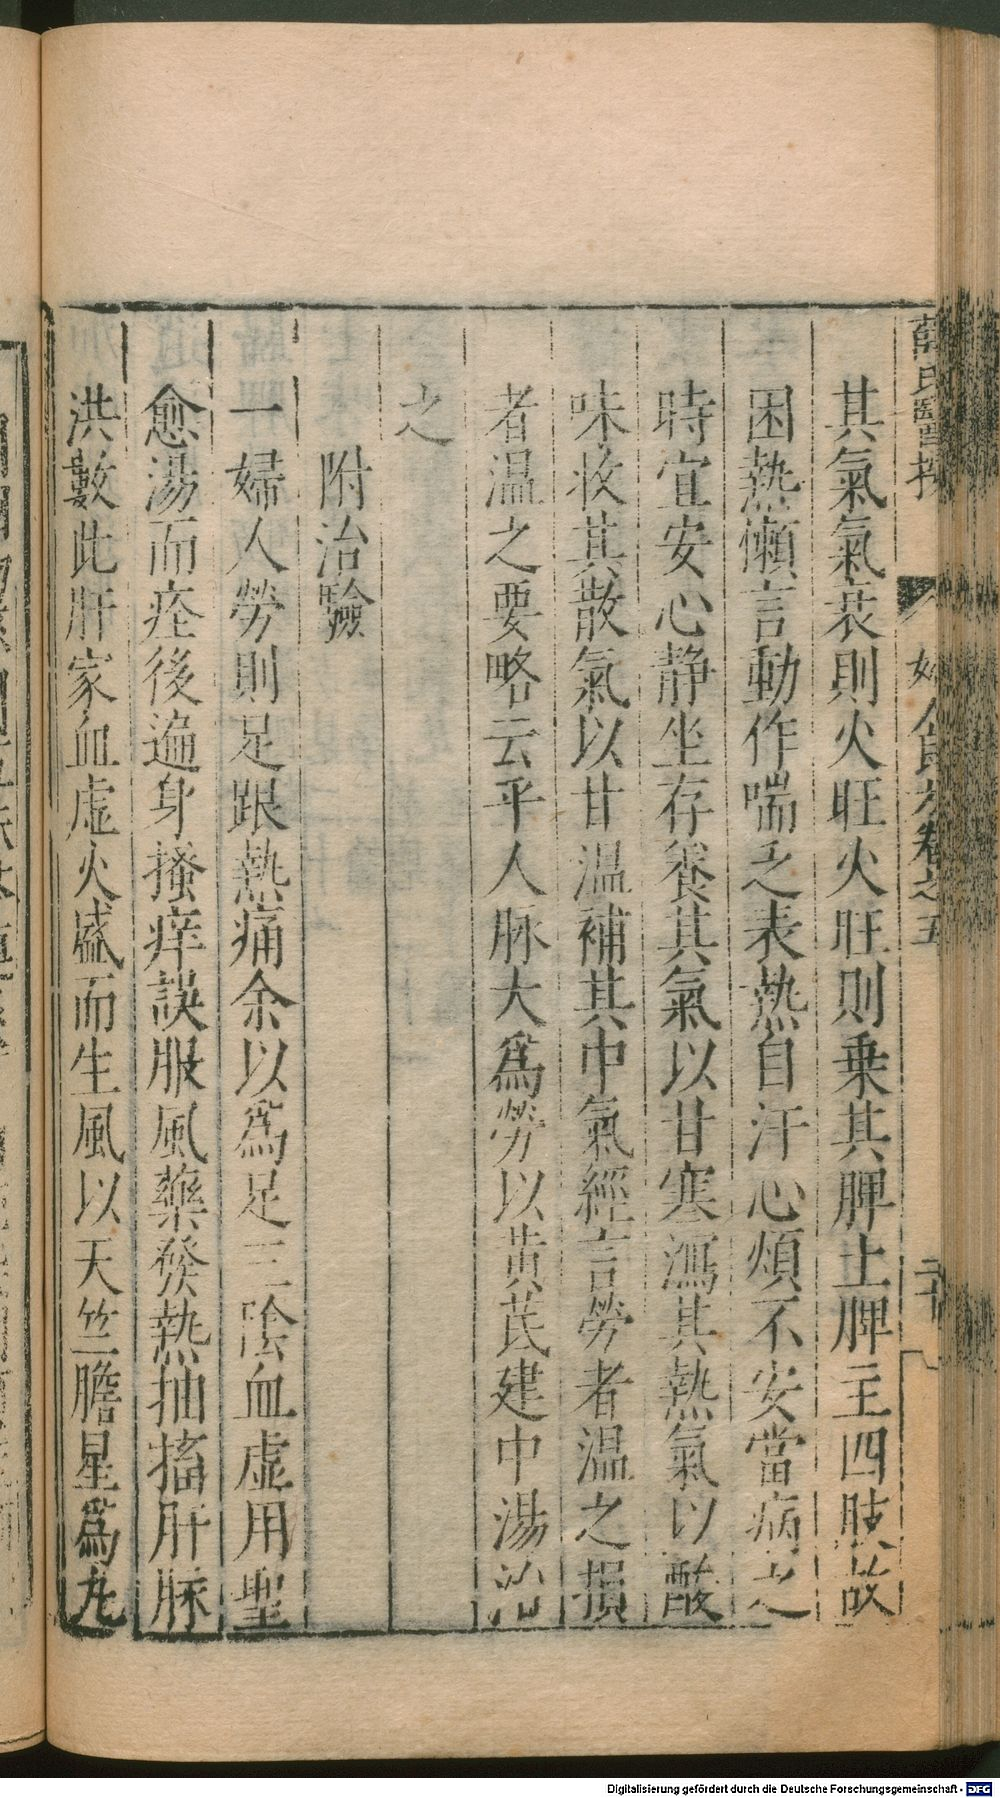 其氣氣衰則火旺火旺則乗其脾土脾主四肢故
困熱懶言動作喘乏表熱自汗心煩不安當病之
時宜安心静坐存養其氣以甘寒瀉其熱氣以酸
味收其散氣以甘温補其中氣經言勞者温之損
者温之要略云平人脉大爲勞以黄芪建中湯治
之
附治驗
一婦人勞則足跟熱痛余以爲足三陰血虚用聖
愈湯而痊後遍身搔痒誤服風藥發熱抽搐肝脉
洪數此肝家血虚火盛而生風以天竺膽星爲丸
卷之五
Digitalisierung gefördert durch die Deutsche Forschungsgemeinschaft - DFG